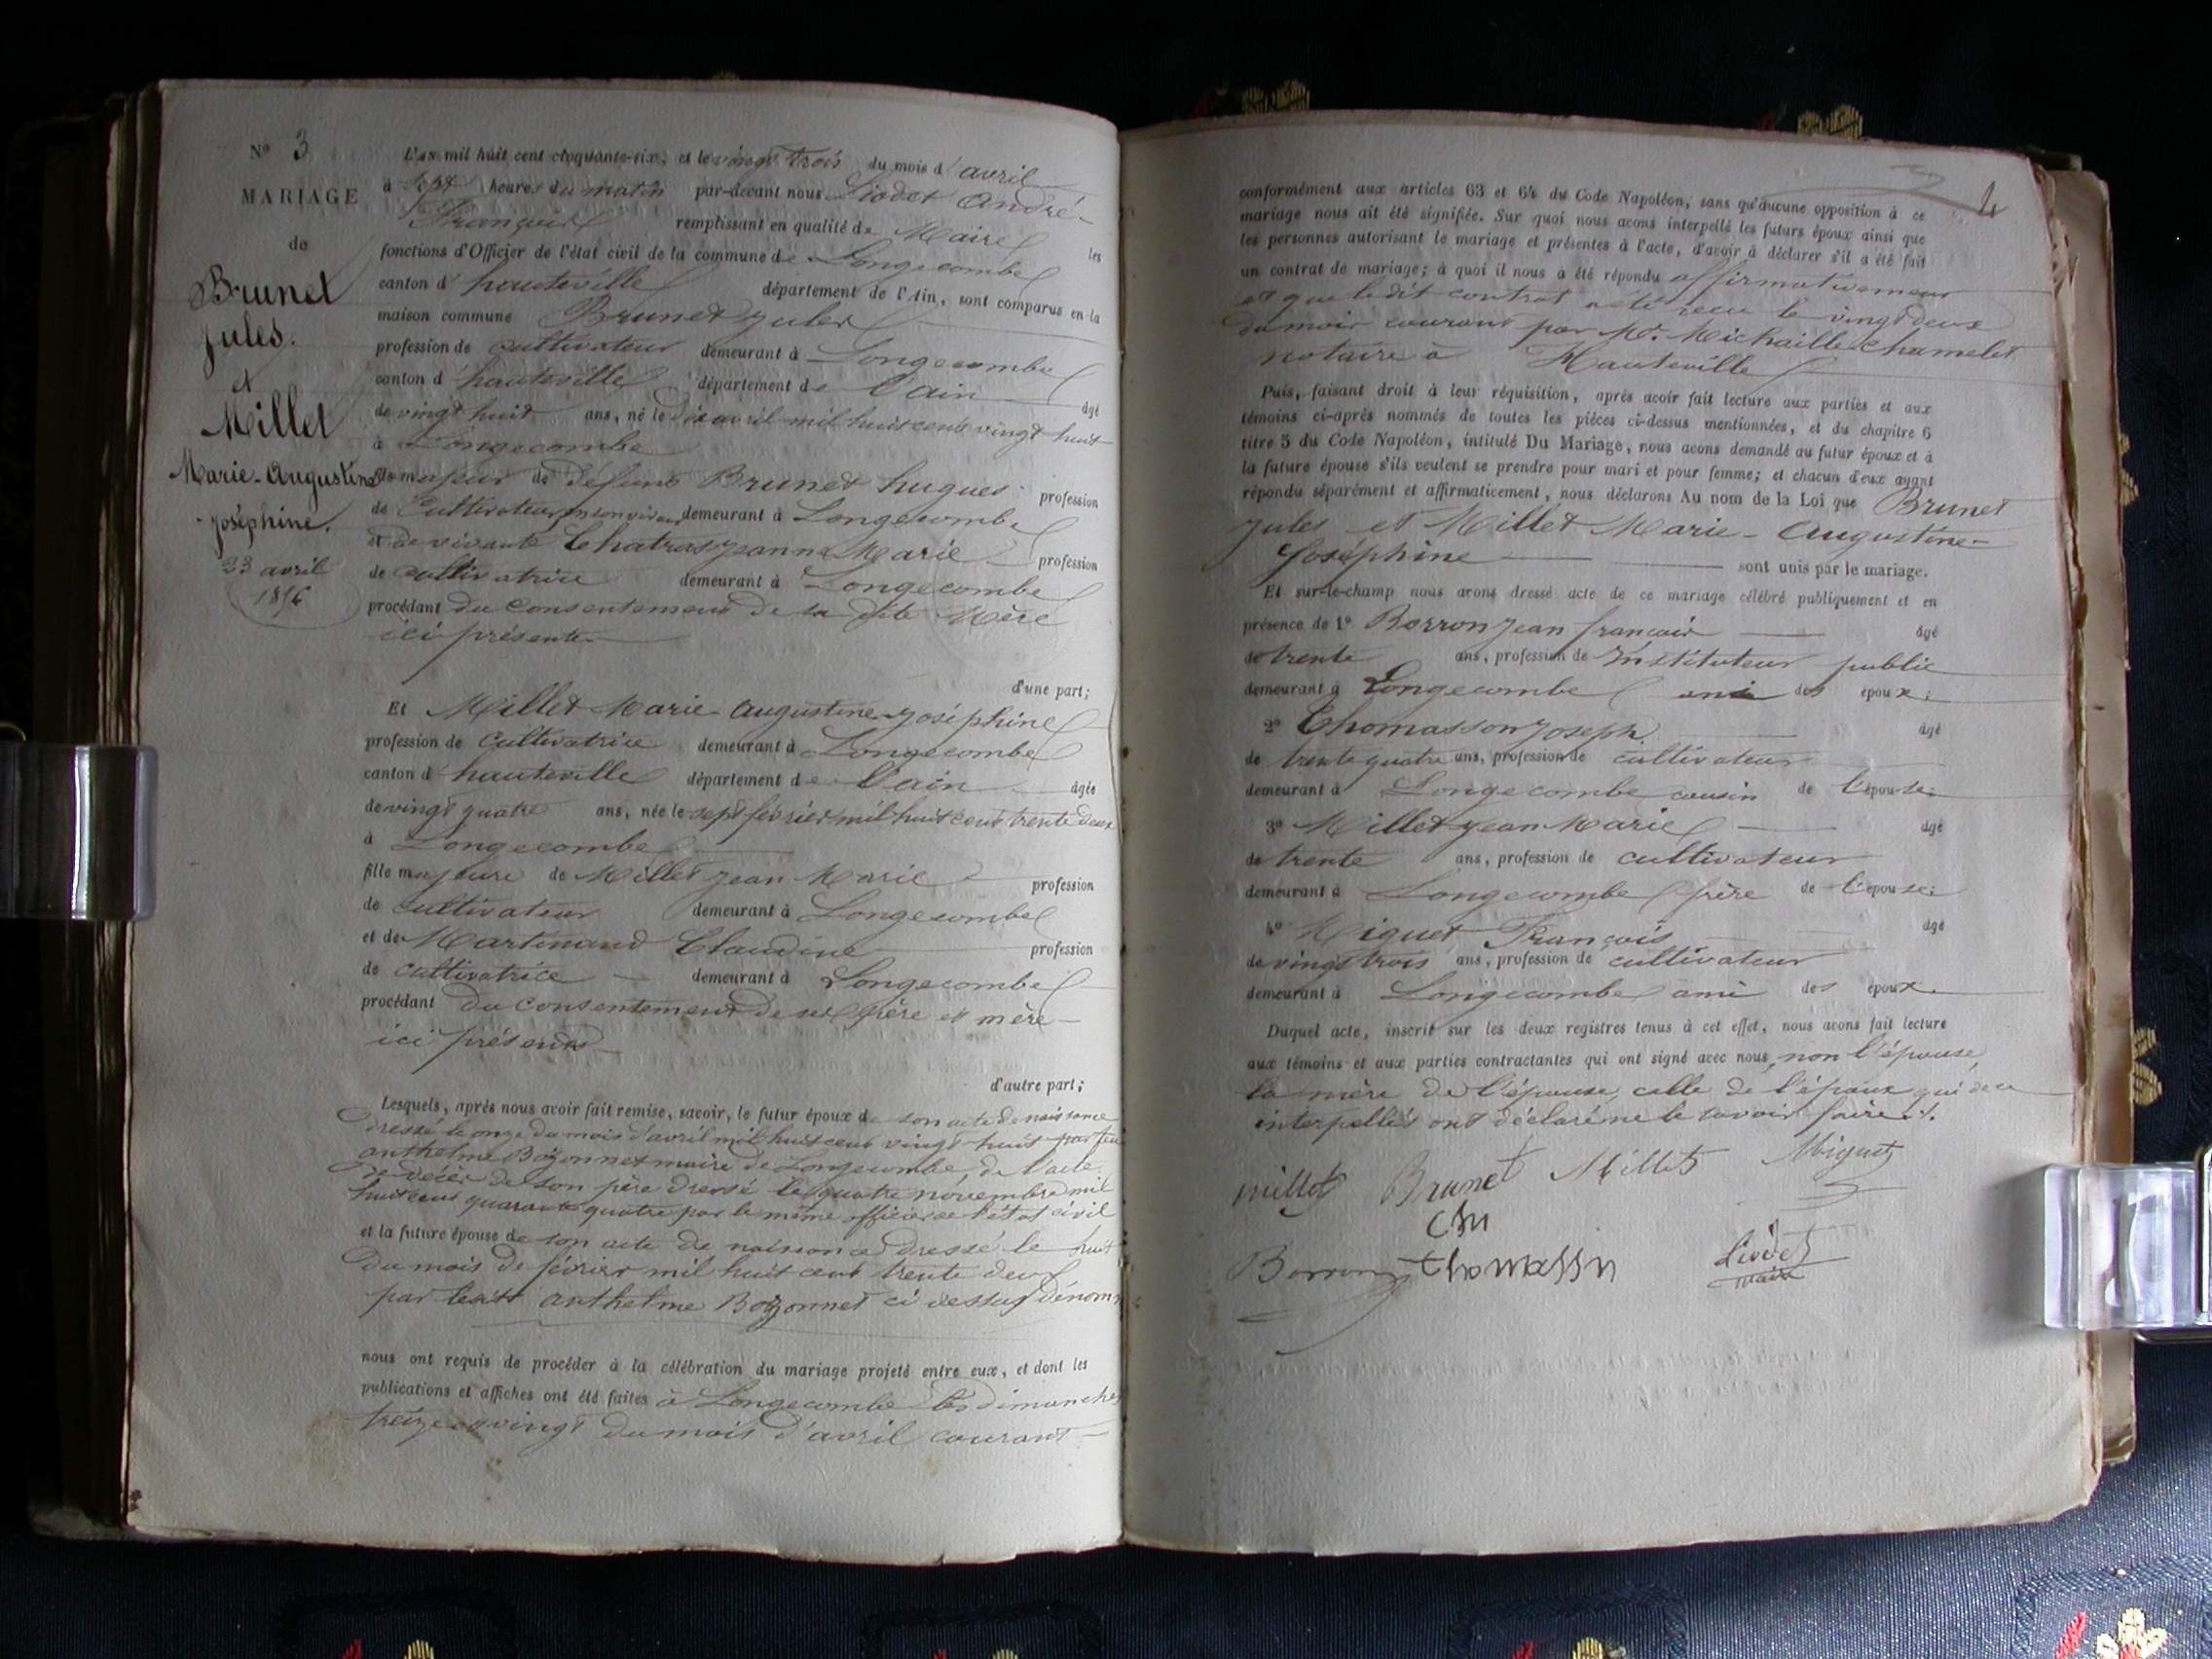 N° 3
MARIAGE
de
Brunet
Jules.
et
Millet
Marie-Augustine
-Joséphine.
23 avril
1856
L'an mil huit cent cinquante-six, et le vingt trois du mois d'avril
à sept heures du matin par-devant nous Liodet André-
François remplissant en qualité de Maire les
fonctions d'Officier de l'état civil de la commune de Longecombe
canton d'hauteville département de l'Ain, sont comparus en la
maison commune Brunet Jules
profession de cultivateur demeurant à Longecombe
canton d'hauteville département de l'ain âgé
de vingt huit ans, né le dix avril mil huit cent vingt huit
à Longecombe
fils majeur de défunt Brunet hugues profession
de Cultivateur en son vivant demeurant à Longecombe
et de vivante Chatras Jeanne Marie profession
de cultivatrice demeurant à Longecombe
procédant du Consentement de sa dite Mère
ici présente
d'une part;
Et Millet Marie-Augustine-Joséphine
profession de Cultivatrice demeurant à Longecombe
canton d'hauteville département de l'ain âgée
de vingt quatre ans, née le sept février mil huit cent trente deux
à Longecombe
fille majeure de Millet Jean Marie profession
de cultivateur demeurant à Longecombe
et de Martinand Claudine profession
de cultivatrice demeurant à Longecombe
procédant du Consentement de ses père et mère
ici présents
d'autre part;
Lesquels, après nous avoir fait remise, savoir, le futur époux de son acte de naissance
dressé le onze du mois d'avril mil huit cent vingt huit par feu
anthelme Bozonnet maire de Longecombe, de l'acte
de décès de son père dressé le quatre novembre mil
huit cent quarante quatre par le même officier de l'état civil
et la future épouse de son acte de naissance dressé le huit
du mois de février mil huit cent trente deux
par ledit anthelme Bozonnet ci dessus dénommé
nous ont requis de procéder à la célébration du mariage projeté entre eux, et dont les
publications et affiches ont été faites à Longecombe les dimanches
treize et vingt du mois d'avril courant
4
conformément aux articles 63 et 64 du Code Napoléon, sans qu'aucune opposition à ce
mariage nous ait été signifiée. Sur quoi nous avons interpellé les futurs époux ainsi que
les personnes autorisant le mariage et présentes à l'acte, d'avoir à déclarer s'il a été fait
un contrat de mariage; à quoi il nous à été répondu affirmativement
et que ledit contrat a été reçu le vingt deux
du mois courant par Me. Michaille Chamelet
notaire à Hauteville
Puis, faisant droit à leur réquisition, après avoir fait lecture aux parties et aux
témoins ci-après nommés de toutes les pièces ci-dessus mentionnées, et du chapitre 6
titre 5 du Code Napoléon, intitulé Du Mariage, nous avons demandé au futur époux et à
la future épouse s'ils veulent se prendre pour mari et pour femme; et chacun d'eux ayant
répondu séparément et affirmativement, nous déclarons Au nom de la Loi que Brunet
Jules et Millet Marie-Augustine-
Joséphine sont unis par le mariage.
Et sur-le-champ nous avons dressé acte de ce mariage célébré publiquement et en
présence de 1° Borron Jean françois âgé
de trente ans, profession de Instituteur public
demeurant à Longecombe ami des époux;
2° Thomasson Joseph âgé
de trente quatre ans, profession de cultivateur
demeurant à Longecombe cousin de l'épouse;
3° Millet Jean Marie âgé
de trente ans, profession de cultivateur
demeurant à Longecombe frère de l'épouse;
4° Miguet François âgé
de vingt trois ans, profession de cultivateur
demeurant à Longecombe ami des époux.
Duquel acte, inscrit sur les deux registres tenus à cet effet, nous avons fait lecture
aux témoins et aux parties contractantes qui ont signé avec nous, non l'épouse,
la mère de l'épouse, celle de l'époux qui de ce
interpellés ont déclaré ne le savoir faire./.
millet Brunet Millet Miguet
Borron thomassn Liodet
maire